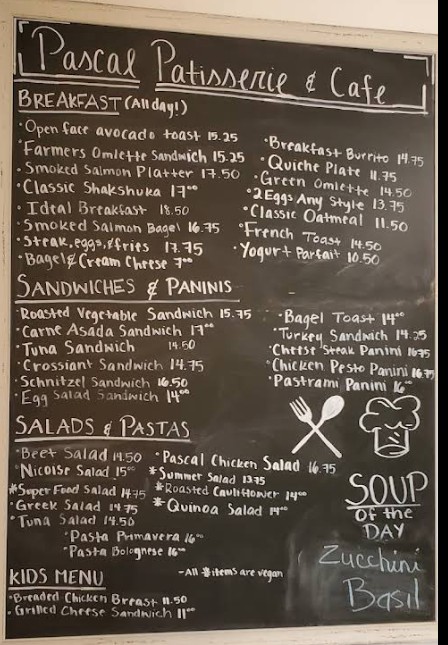 Pascal Patisserie & Cafe
BREAKFAST (All day!)
·Open face avocado toast 15.25
·Farmers Omlette Sandwich 15.25
·Smoked Salmon Platter 17.50
·Classic Shakshuka 17⁰⁰
·Ideal Breakfast 18.50
·Smoked Salmon Bagel 16.75
·Steak, eggs, & fries 17.75
·Bagel & Cream Cheese 7⁰⁰
·Breakfast Burrito 14.75
·Quiche Plate 11.75
·Green Omlette 14.50
·2 Eggs Any Style 13.75
·Classic Oatmeal 11.50
·French Toast 14.50
·Yogurt Parfait 10.50
SANDWICHES & PANINIS
·Roasted Vegetable Sandwich 15.75
·Carne Asada Sandwich 17⁰⁰
·Tuna Sandwich 14.50
·Crossiant Sandwich 14.75
·Schnitzel Sandwich 16.50
·Egg Salad Sandwich 14⁰⁰
·Bagel Toast 14⁰⁰
·Turkey Sandwich 14.25
·Cheese Steak Panini 16.75
·Chicken Pesto Panini 16.75
·Pastrami Panini 16⁰⁰
SALADS & PASTAS
·Beet Salad 14.50
·Nicoise Salad 15⁰⁰
*Super Food Salad 14.75
·Greek Salad 14.75
·Tuna Salad 14.50
·Pascal Chicken Salad 16.75
*Summer Salad 13.75
*Roasted Cauliflower 14⁰⁰
*Quinoa Salad 14⁰⁰
·Pasta Primavera 16⁰⁰
·Pasta Bolognese 16⁰⁰
-All * items are vegan
KIDS MENU
·Breaded Chicken Breast 11.50
·Grilled Cheese Sandwich 11⁰⁰
SOUP
Of the
DAY
Zucchini
Basil